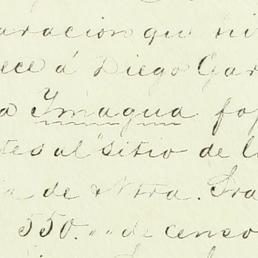 aracion que hi
ece á Diego Gar
a Ymagua fo
tes al sitio de l
de Ntra. Sra
550. " de censo